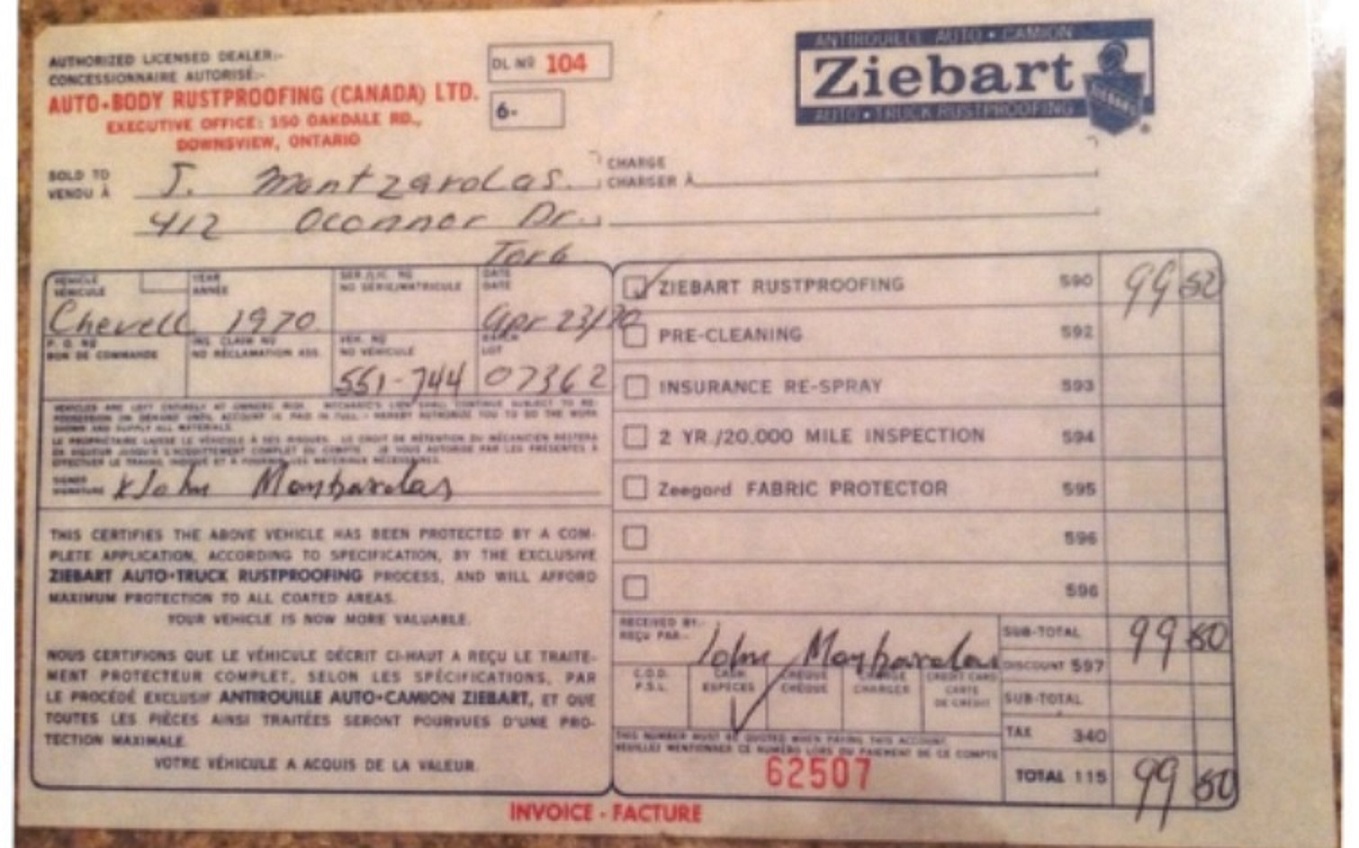 AUTHORIZED LICENSED DEALER:-
CONCESSIONNAIRE AUTORISÉ:-
AUTO•BODY RUSTPROOFING (CANADA) LTD.
EXECUTIVE OFFICE: 150 OAKDALE RD.,
DOWNSVIEW, ONTARIO
DL Nº 104
6-
ANTIROUILLE AUTO • CAMION
Ziebart
AUTO • TRUCK RUSTPROOFING
ZIEBART
SOLD TO
VENDU À
J. Montzarolas.
412 Oconnor Dr.
Toro
CHARGE
CHARGER À
VEHICLE
VÉHICULE
Chevell
YEAR
ANNÉE
1970
SER./LIC. NO
NO SÉRIE/MATRICULE
DATE
DATE
Apr 23/70
P. O. NO
BON DE COMMANDE
INS. CLAIM NO
NO RÉCLAMATION ASS.
VEH. NO
NO VÉHICULE
551-744
BATCH
LOT
07362
VEHICLES ARE LEFT ENTIRELY AT OWNERS RISK. MECHANIC'S LIEN SHALL CONTINUE SUBJECT TO RE-
POSSESSION ON DEMAND UNTIL ACCOUNT IS PAID IN FULL. I HEREBY AUTHORIZE YOU TO DO THE WORK
SHOWN AND SUPPLY ALL MATERIALS.
LE PROPRIÉTAIRE LAISSE LE VÉHICULE À SES RISQUES. LE DROIT DE RÉTENTION DU MÉCANICIEN RESTERA
EN VIGUEUR JUSQU'À L'ACQUITTEMENT COMPLET DU COMPTE. JE VOUS AUTORISE PAR LES PRÉSENTES À
EFFECTUER LE TRAVAIL INDIQUÉ ET À FOURNIR LES MATÉRIAUX NÉCESSAIRES.
SIGNED
SIGNATURE
x John
THIS CERTIFIES THE ABOVE VEHICLE HAS BEEN PROTECTED BY A COM-
PLETE APPLICATION, ACCORDING TO SPECIFICATION, BY THE EXCLUSIVE
ZIEBART AUTO•TRUCK RUSTPROOFING PROCESS, AND WILL AFFORD
MAXIMUM PROTECTION TO ALL COATED AREAS.
YOUR VEHICLE IS NOW MORE VALUABLE.
NOUS CERTIFIONS QUE LE VÉHICULE DÉCRIT CI-HAUT A REÇU LE TRAITE-
MENT PROTECTEUR COMPLET, SELON LES SPÉCIFICATIONS, PAR
LE PROCÉDÉ EXCLUSIF ANTIROUILLE AUTO•CAMION ZIEBART, ET QUE
TOUTES LES PIÈCES AINSI TRAITÉES SERONT POURVUES D'UNE PRO-
TECTION MAXIMALE.
VOTRE VÉHICULE A ACQUIS DE LA VALEUR.
ZIEBART RUSTPROOFING 590 99 50
PRE-CLEANING 592
INSURANCE RE-SPRAY 593
2 YR./20,000 MILE INSPECTION 594
Zeegard FABRIC PROTECTOR 595
596
596
RECEIVED BY:-
REÇU PAR:-
John
SUB-TOTAL 99 50
DISCOUNT 597
SUB-TOTAL
TAX 340
TOTAL 115 99 50
C.O.D.
P.S.L.
CASH
ESPÈCES
CHEQUE
CHÈQUE
CHARGE
CHARGER
CREDIT CARD
CARTE
DE CRÉDIT
THIS NUMBER MUST BE QUOTED WHEN PAYING THIS ACCOUNT.
VEUILLEZ MENTIONNER CE NUMÉRO LORS DU PAIEMENT DE CE COMPTE
62507
INVOICE - FACTURE